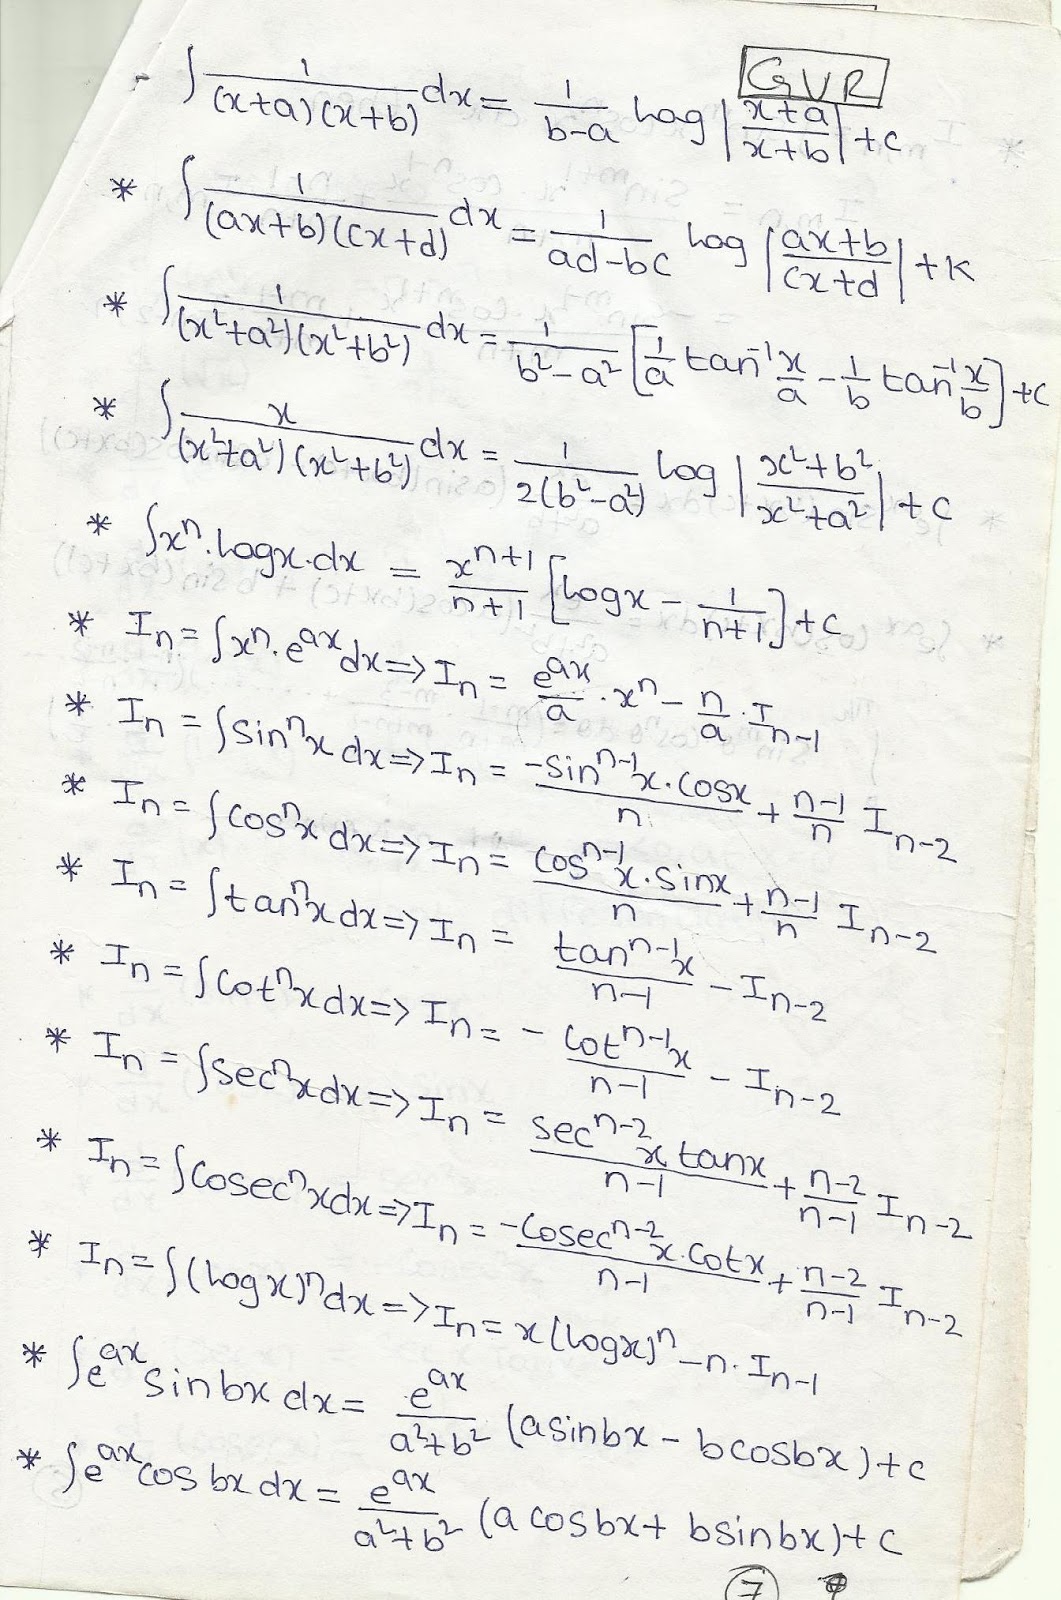 GVR
- ∫ 1/((x+a)(x+b)) dx = 1/(b-a) log |(x+a)/(x+b)| + c
* ∫ 1/((ax+b)(cx+d)) dx = 1/(ad-bc) log |(ax+b)/(cx+d)| + K
* ∫ 1/((x²+a²)(x²+b²)) dx = 1/(b²-a²) [1/a tan⁻¹ x/a - 1/b tan⁻¹ x/b] + c
* ∫ x/((x²+a²)(x²+b²)) dx = 1/(2(b²-a²)) log |(x²+b²)/(x²+a²)| + c
* ∫xⁿ.logx.dx = xⁿ⁺¹/(n+1) [logx - 1/(n+1)] + c
* Iₙ = ∫xⁿ.e^(ax) dx => Iₙ = e^(ax)/a . xⁿ - n/a . Iₙ₋₁
* Iₙ = ∫sinⁿx dx => Iₙ = -sinⁿ⁻¹x.cosx/n + (n-1)/n Iₙ₋₂
* Iₙ = ∫cosⁿx dx => Iₙ = cosⁿ⁻¹x.sinx/n + (n-1)/n Iₙ₋₂
* Iₙ = ∫tanⁿx dx => Iₙ = tanⁿ⁻¹x/(n-1) - Iₙ₋₂
* Iₙ = ∫cotⁿx dx => Iₙ = - cotⁿ⁻¹x/(n-1) - Iₙ₋₂
* Iₙ = ∫secⁿx dx => Iₙ = secⁿ⁻²x tanx/(n-1) + (n-2)/(n-1) Iₙ₋₂
* Iₙ = ∫cosecⁿx dx => Iₙ = -cosecⁿ⁻²x.cotx/(n-1) + (n-2)/(n-1) Iₙ₋₂
* Iₙ = ∫(logx)ⁿ dx => Iₙ = x(logx)ⁿ - n.Iₙ₋₁
* ∫e^(ax) sinbx dx = e^(ax)/(a²+b²) (asinbx - bcosbx) + c
* ∫e^(ax) cos bx dx = e^(ax)/(a²+b²) (a cosbx + bsinbx) + c
7